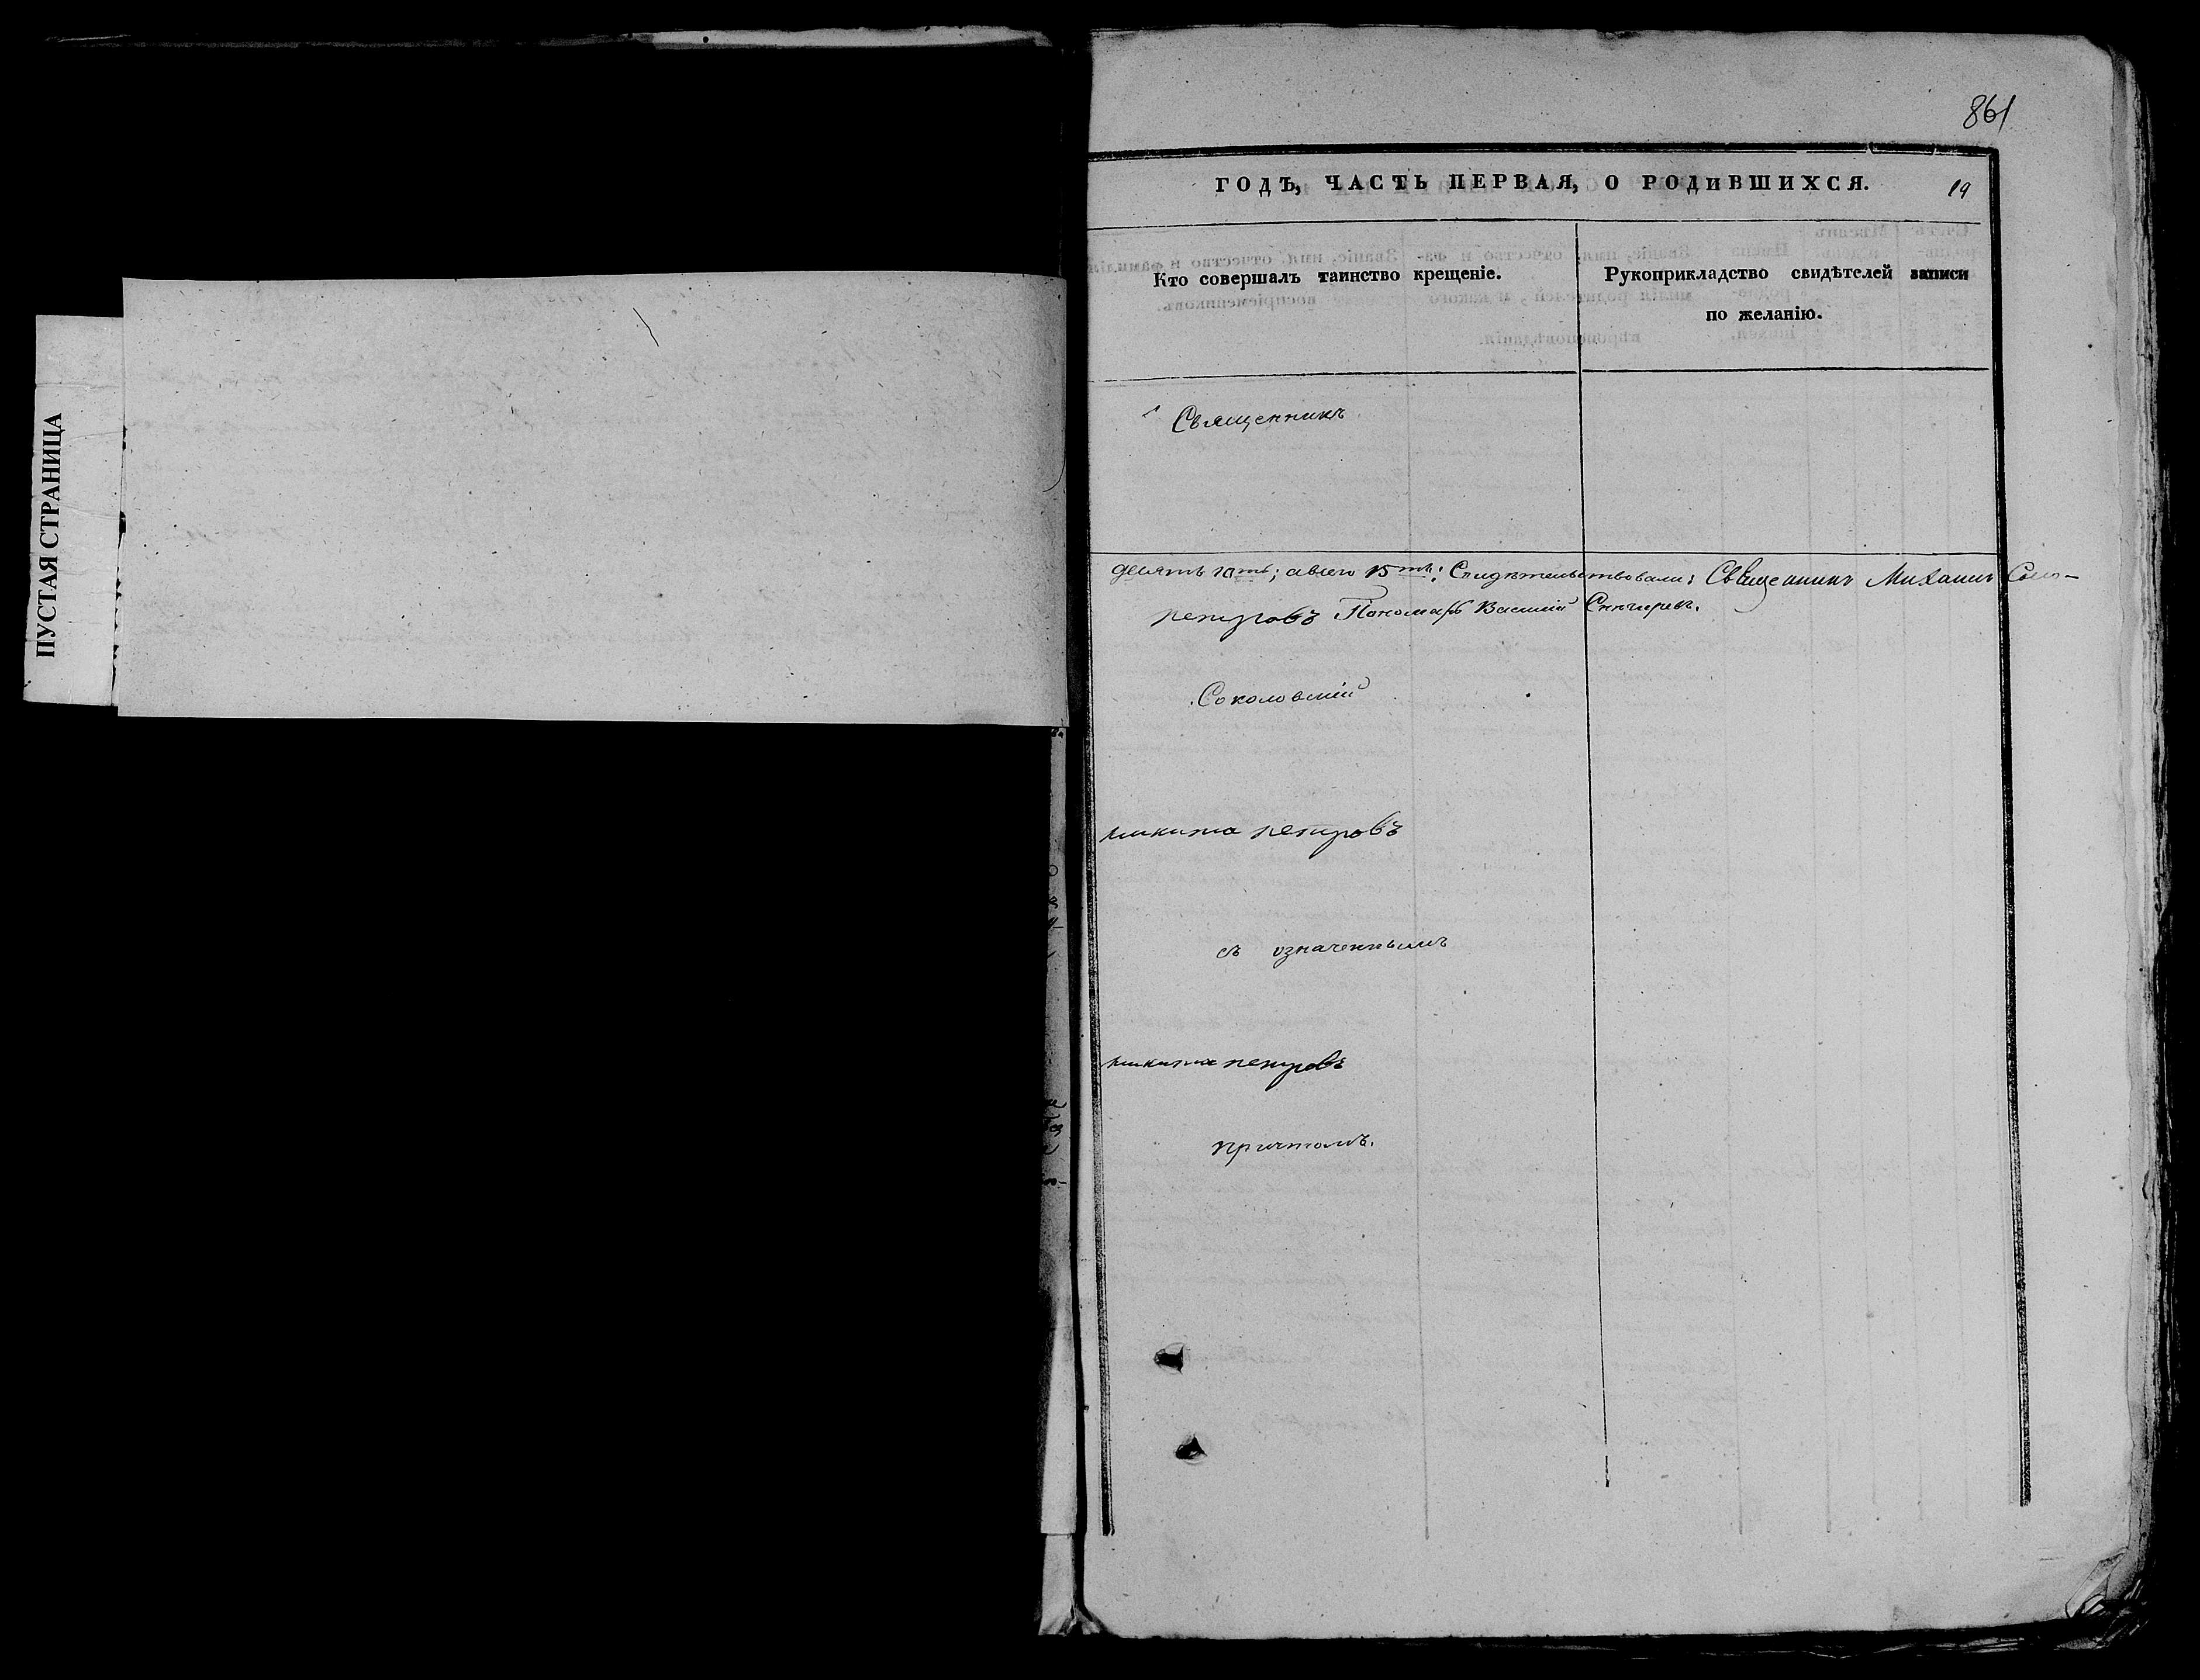 ПУСТАЯ СТРАНИЦА
861
ГОДЪ, ЧАСТЬ ПЕРВАЯ, О РОДИВШИХСЯ.
19
Кто совершалъ таинство крещеніе.
Рукоприкладство свидѣтелей записи
по желанію.
Священникъ
десять 10ть; авсего 15ть: Свидѣтельствовали: Священникъ Михаилъ Соко-
петровъ Пономарь Василій Снигиревъ.
Соколовскій
никита петровъ
съ означеннымъ
никита петровъ
причтомъ.